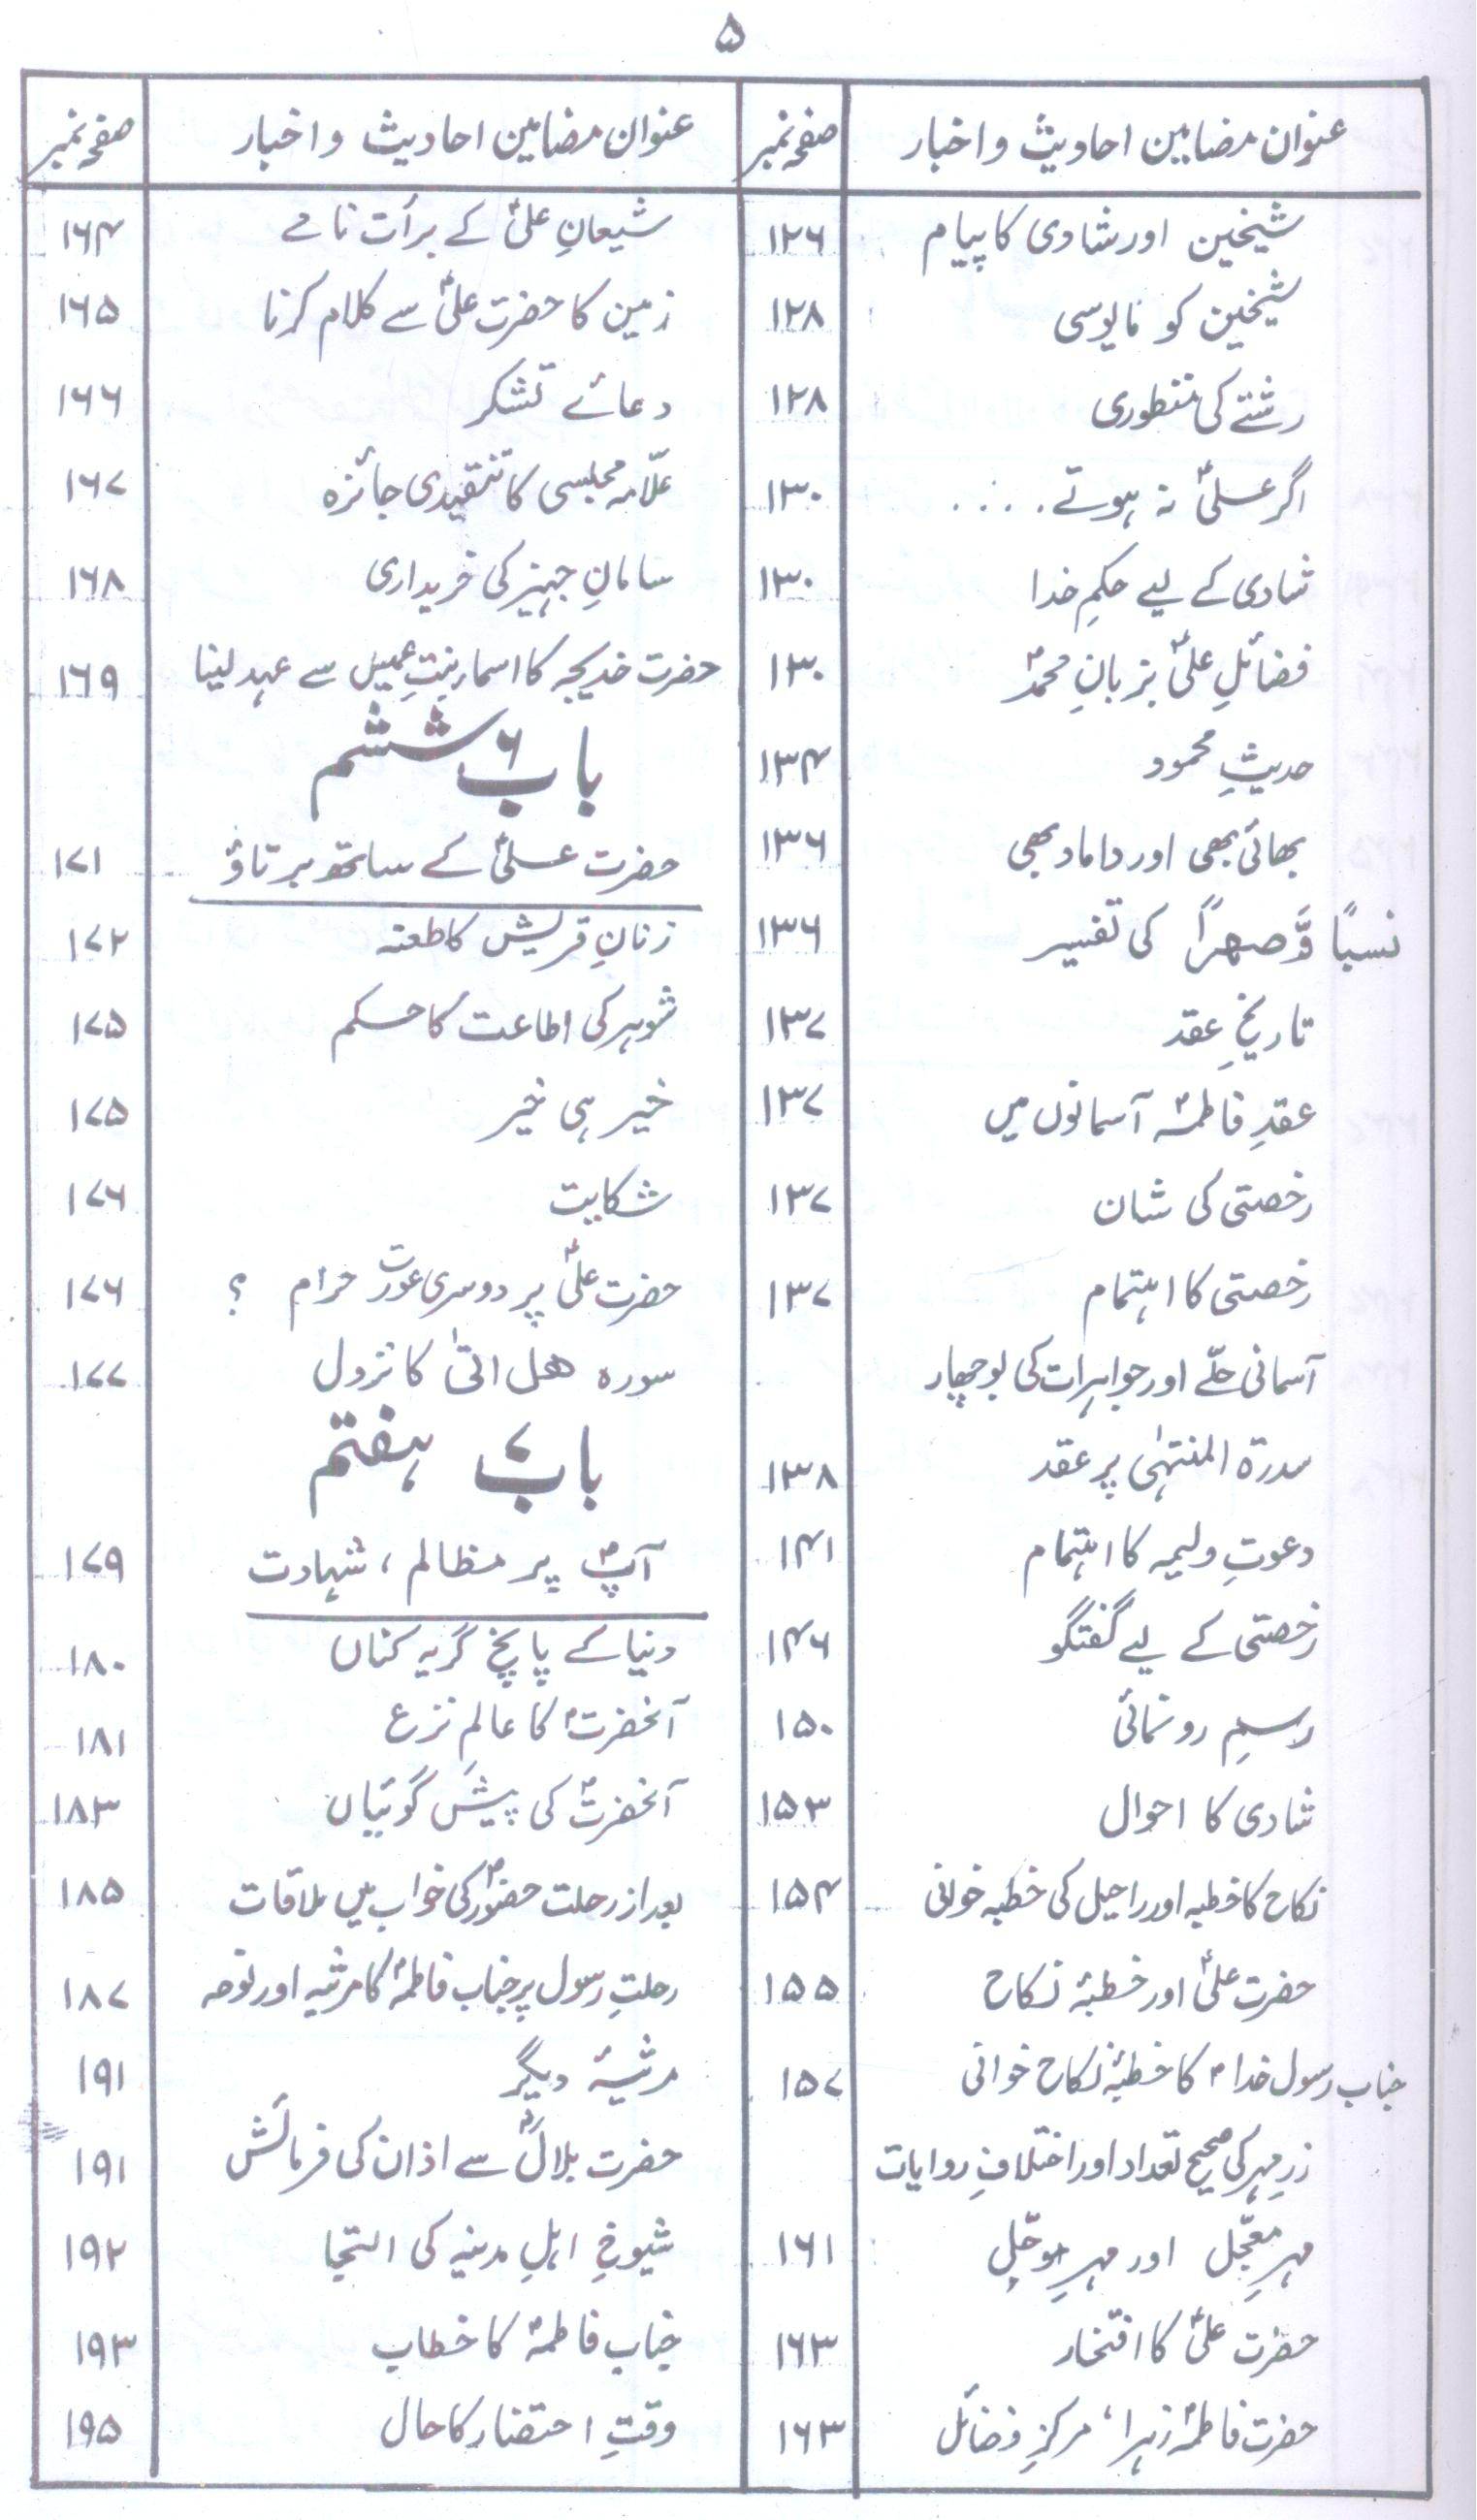 ۵
عنوان مضامین احادیث و اخبار صفحہ نمبر
شیخین اور شادی کا پیام ۱۲۶
شیخین کو مایوسی ۱۲۸
رشتے کی منظوری ۱۲۸
اگر علیؑ نہ ہوتے ..... ۱۳۰
شادی کے لیے حکمِ خدا ۱۳۰
فضائلِ علیؑ بزبانِ محمدؐ ۱۳۰
حدیثِ محمود ۱۳۴
بھائی بھی اور داماد بھی ۱۳۶
نسبًا وَّصھرًا کی تفسیر ۱۳۶
تاریخِ عقد ۱۳۷
عقدِ فاطمہؑ آسمانوں میں ۱۳۷
رخصتی کی شان ۱۳۷
رخصتی کا اہتمام ۱۳۷
آسمانی حلّے اور جواہرات کی بوچھار
سدرۃ المنتہٰی پر عقد ۱۳۸
دعوتِ ولیمہ کا اہتمام ۱۴۱
رخصتی کے لیے گفتگو ۱۴۶
رسمِ رونمائی ۱۵۰
شادی کا احوال ۱۵۳
نکاح کا خطبہ اور راحیل کی خطبہ خوانی ۱۵۴
حضرت علیؑ اور خطبۂ نکاح ۱۵۵
جناب رسولِ خداؐ کا خطبۂ نکاح خوانی ۱۵۷
زرِ مہر کی صحیح تعداد اور اختلافِ روایات
مہرِ معجّل اور مہرِ موجّل ۱۶۱
حضرت علیؑ کا افتخار ۱۶۳
حضرت فاطمہؑ زہرا، مرکزِ فضائل ۱۶۳
عنوان مضامین احادیث و اخبار صفحہ نمبر
شیعانِ علیؑ کے برأت نامے ۱۶۴
زمین کا حضرت علیؑ سے کلام کرنا ۱۶۵
دعائے تشکر ۱۶۶
علّامہ مجلسی کا تنقیدی جائزہ ۱۶۷
سامانِ جہیز کی خریداری ۱۶۸
حضرت خدیجہ کا اسماء بنتِ عمیس سے عہد لینا ۱۶۹
باب ۶ ششم
حضرت علیؑ کے ساتھ برتاؤ ۱۷۱
زنانِ قریش کا طعنہ ۱۷۲
شوہر کی اطاعت کا حکم ۱۷۵
خیر ہی خیر ۱۷۵
شکایت ۱۷۶
حضرت علیؑ پر دوسری عورت حرام ؟ ۱۷۶
سورہ ھل اتیٰ کا نزول ۱۷۷
باب ۷ ہفتم
آپؑ پر مظالم ، شہادت ۱۷۹
دنیا کے پانچ گریہ کناں ۱۸۰
آنحضرتؐ کا عالمِ نزع ۱۸۱
آنحضرتؐ کی پیش گوئیاں ۱۸۳
بعد از رحلت حضورؐ کی خواب میں ملاقات ۱۸۵
رحلتِ رسول پر جناب فاطمہؑ کا مرثیہ اور نوحہ ۱۸۷
مرثیۂ دیگر ۱۹۱
حضرت بلالؓ سے اذان کی فرمائش ۱۹۱
شیوخِ اہلِ مدینہ کی التجا ۱۹۲
جناب فاطمہؑ کا خطاب ۱۹۳
وقتِ احتضار کا حال ۱۹۵